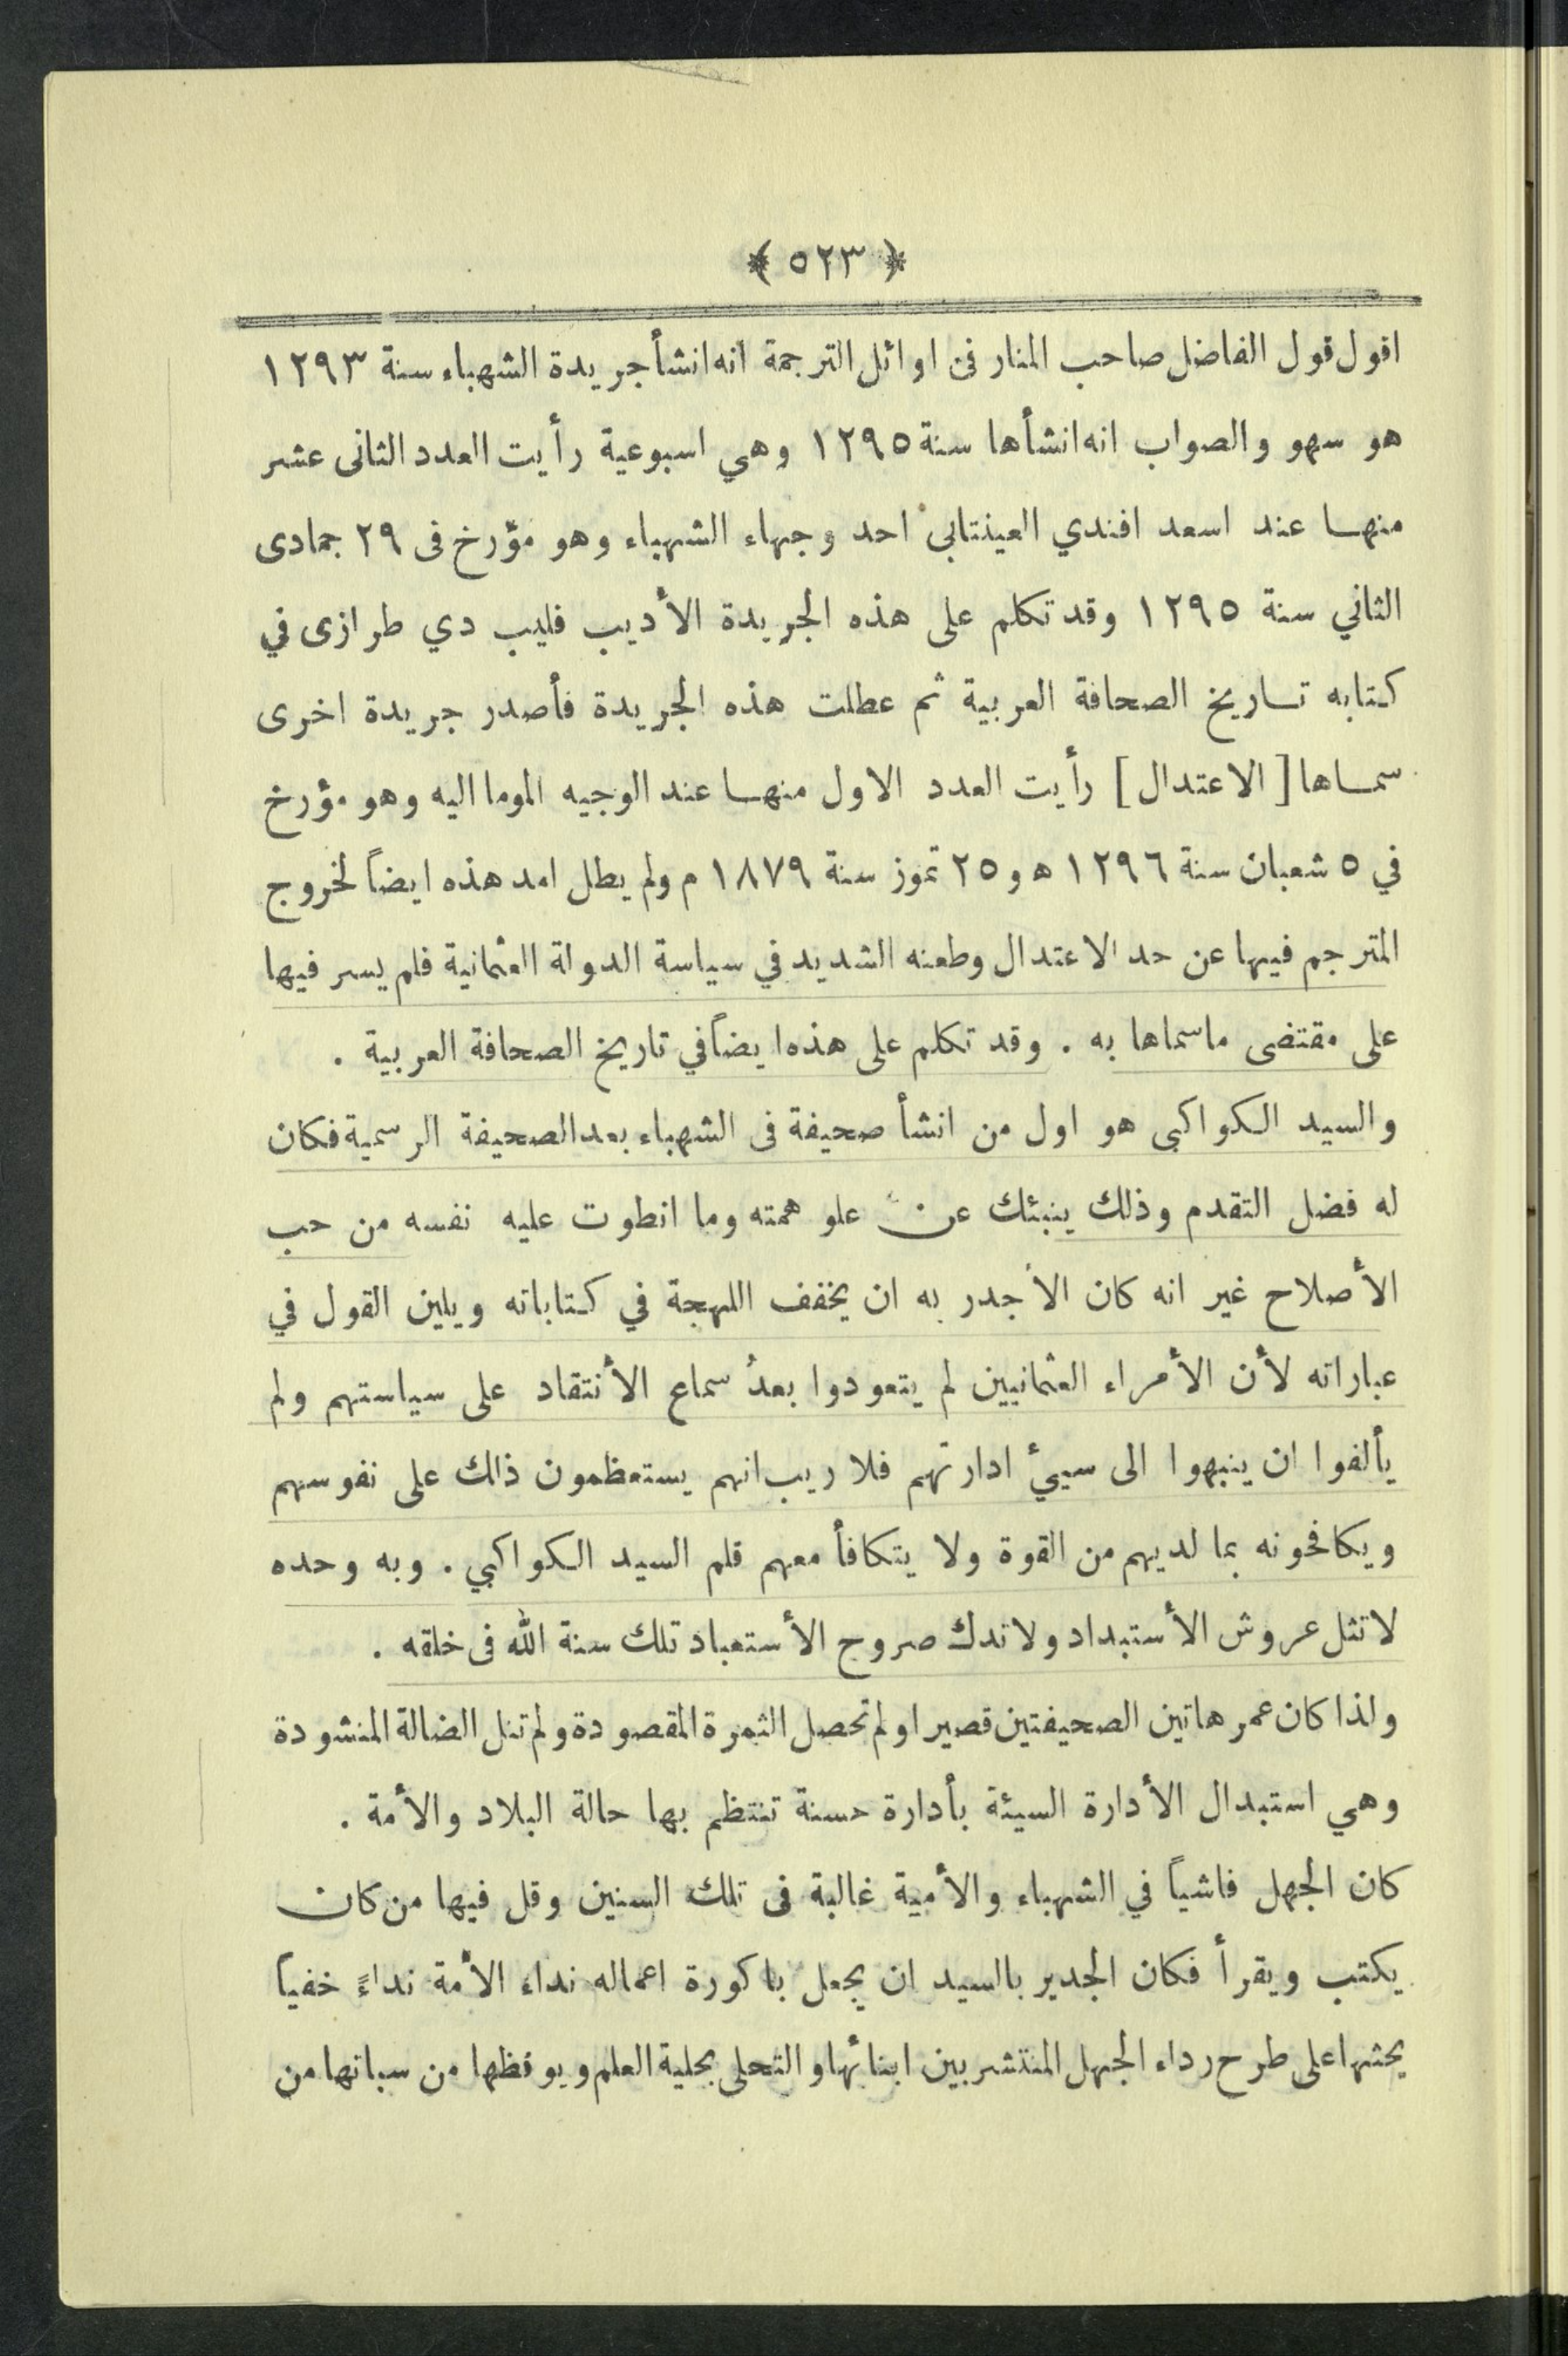 ﴿ ٥٢٣ ﴾
اقول قول الفاضل صاحب المنار فى اوائل الترجمة انه انشأ جريدة الشهباء سنة ١٢٩٣
هو سهو والصواب انه انشأها سنة ١٢٩٥ وهي اسبوعية رأيت العدد الثانى عشر
منها عند اسعد افندي العينتابى احد وجهاء الشهباء وهو مؤرخ فى ٢٩ جمادى
الثاني سنة ١٢٩٥ وقد تكلم على هذه الجريدة الأديب فليب دي طرازى في
كتابه تاريخ الصحافة العربية ثم عطلت هذه الجريدة فأصدر جريدة اخرى
سماها [ الاعتدال ] رأيت العدد الاول منها عند الوجيه الموما اليه وهو مؤرخ
في ٥ شعبان سنة ١٢٩٦ ه و ٢٥ تموز سنة ١٨٧٩ م ولم يطل امد هذه ايضاً لخروج
المترجم فيها عن حد الاعتدال وطعنه الشديد في سياسة الدولة العثمانية فلم يسر فيها
على مقتضى ماسماها به . وقد تكلم على هذه ايضاً في تاريخ الصحافة العربية .
والسيد الكواكبى هو اول من انشأ صحيفة فى الشهباء بعد الصحيفة الرسمية فكان
له فضل التقدم وذلك ينبئك عن علو همته وما انطوت عليه نفسه من حب
الأصلاح غير انه كان الأجدر به ان يخفف اللهجة في كتاباته ويلين القول في
عباراته لأن الأمراء العثمانيين لم يتعودوا بعدُ سماع الأنتقاد على سياستهم ولم
يألفوا ان ينبهوا الى سيئ ادارتهم فلا ريب انهم يستعظمون ذلك على نفوسهم
ويكافحونه بما لديهم من القوة ولا يتكافأ معهم قلم السيد الكواكبي . وبه وحده
لاتثل عروش الأستبداد ولا تدك صروح الأستعباد تلك سنة الله فى خلقه .
ولذا كان عمر هاتين الصحيفتين قصيرا ولم تحصل الثمرة المقصودة ولم تنل الضالة المنشودة
وهي استبدال الأدارة السيئة بأدارة حسنة تنتظم بها حالة البلاد والأمة .
كان الجهل فاشياً في الشهباء والأمية غالبة فى تلك السنين وقل فيها من كان
يكتب ويقرأ فكان الجدير بالسيد ان يجعل باكورة اعماله نداء الأمة نداءً خفيا
يحثها على طرح رداء الجهل المنتشر بين ابنائها والتحلى بحلية العلم ويوقظها من سباتها من